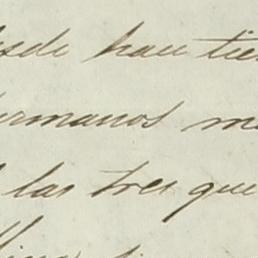 esde hace tie
ermanos m
las tres que